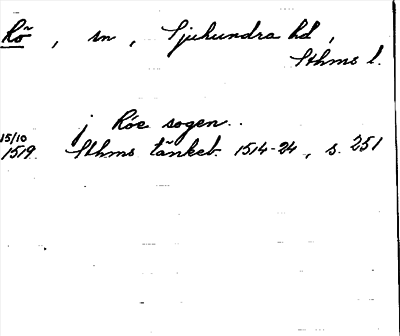 Rö, sn, Sjuhundra hd,
Sthms l.
j Röe sogen..
15/10
1519. Sthms tänkeb. 1514-24, s. 251